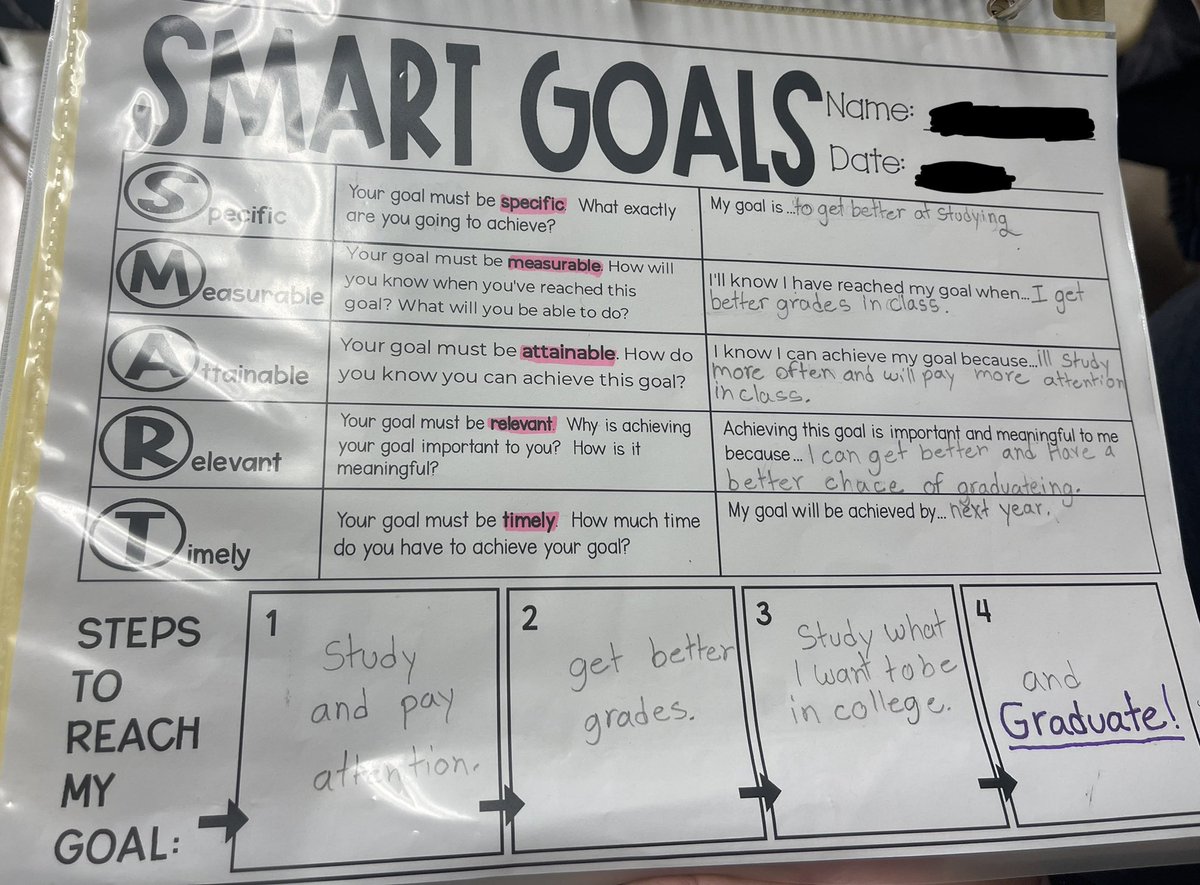 SMART GOALS
Name:
Date:
Specific
Your goal must be specific. What exactly
are you going to achieve?
My goal is...to get better at studying
Measurable
Your goal must be measurable. How will
you know when you've reached this
goal? What will you be able to do?
I'll know I have reached my goal when...I get
better grades in class.
Attainable
Your goal must be attainable. How do
you know you can achieve this goal?
I know I can achieve my goal because...ill study
more often and will pay more attention
in class.
Relevant
Your goal must be relevant. Why is achieving
your goal important to you? How is it
meaningful?
Achieving this goal is important and meaningful to me
because...I can get better and Have a
better chace of graduateing.
Timely
Your goal must be timely. How much time
do you have to achieve your goal?
My goal will be achieved by...next year.
STEPS
TO
REACH
MY
GOAL:
1
Study
and pay
attention.
2
get better
grades.
3
Study what
I want to be
in college.
4
and
Graduate!